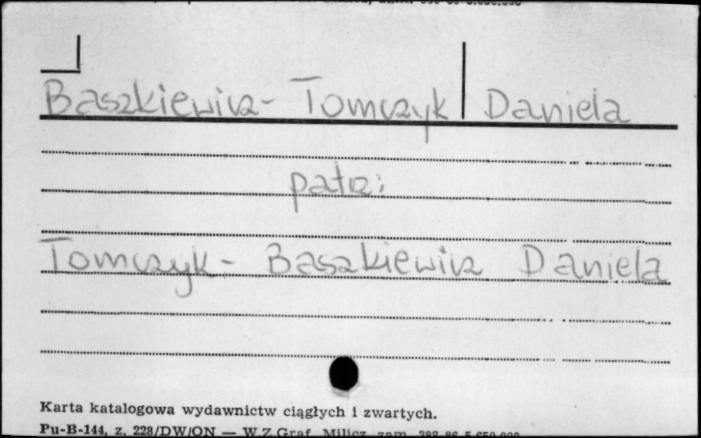 Baszkiewicz - Tomczyk Daniela
patrz:
Tomczyk - Baszkiewicz Daniela
Karta katalogowa wydawnictw ciągłych i zwartych.
Pu-B-144, z. 228/DW/ON — W.Z.Graf. Milicz, zam.